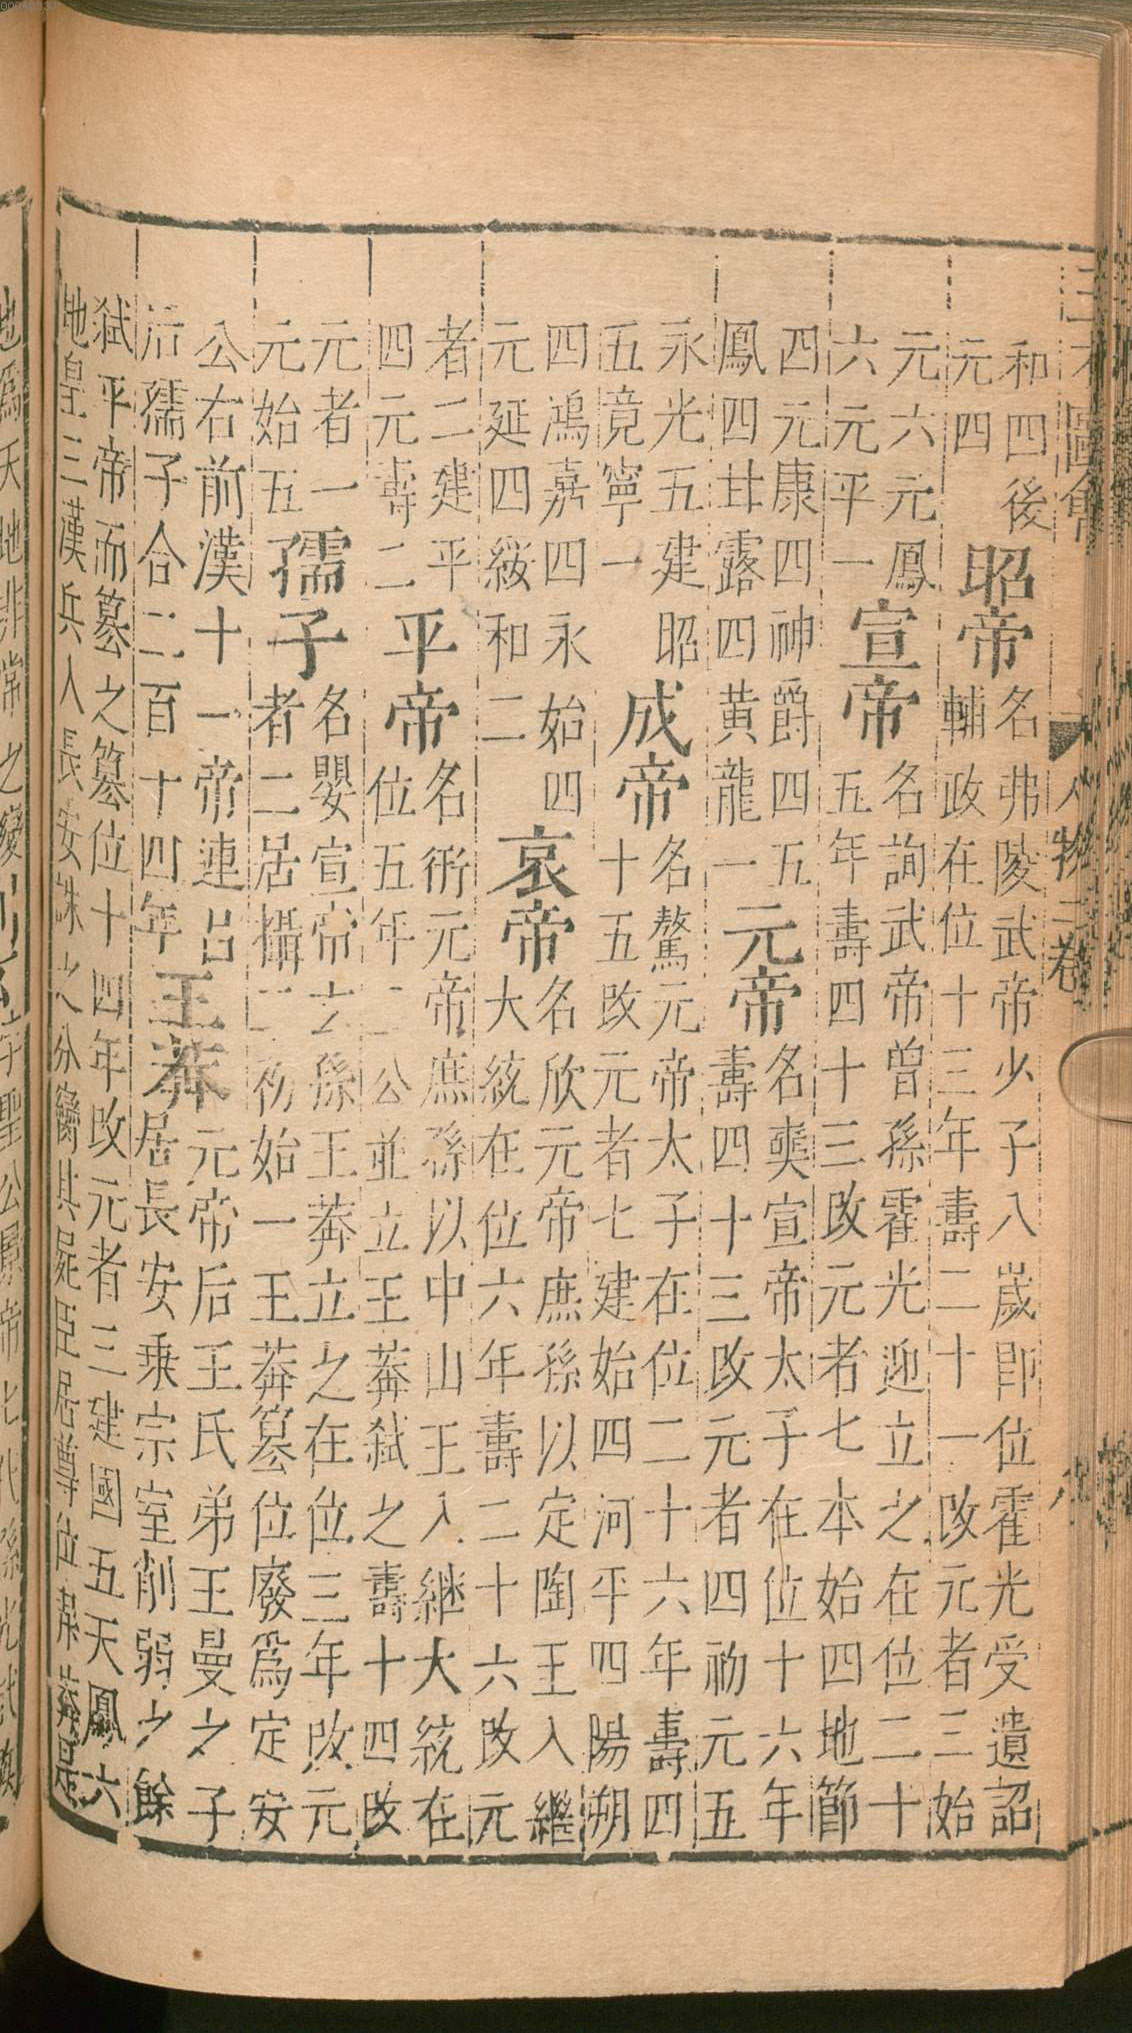 三才圖會 人物三卷 八
和四後
元四
昭帝
名弗陵武帝少子八歲即位霍光受遺詔
輔政在位十三年壽二十一改元者三始
元六元鳳
六元平一
宣帝
名詢武帝曾孫霍光迎立之在位二十
五年壽四十三改元者七本始四地節
四元康四神爵四五
鳳四甘露四黃龍一
元帝
名奭宣帝太子在位十六年
壽四十三改元者四初元五
永光五建昭
五竟寧一
成帝
名驁元帝太子在位二十六年壽四
十五改元者七建始四河平四陽朔
四鴻嘉四永始四
元延四綏和二
哀帝
名欣元帝庶孫以定陶王入繼
大統在位六年壽二十六改元
者二建平
四元壽二
平帝
名衎元帝庶孫以中山王入継大統在
位五年二公並立王莽弒之壽十四改
元者一
元始五
孺子
名嬰宣帝玄孫王莽立之在位三年改元
者二居攝二初始一王莽篡位廢爲定安
公右前漢十一帝連呂
后孺子合二百十四年
王莽
元帝后王氏弟王曼之子
居長安乗宗室削弱之餘
弒平帝而篡之篡位十四年改元者三建國五天鳳六
地皇三漢兵入長安誅之分臠其屍臣居尊位莽是
也爲天地非常之變
字聖公景帝七代孫光武族